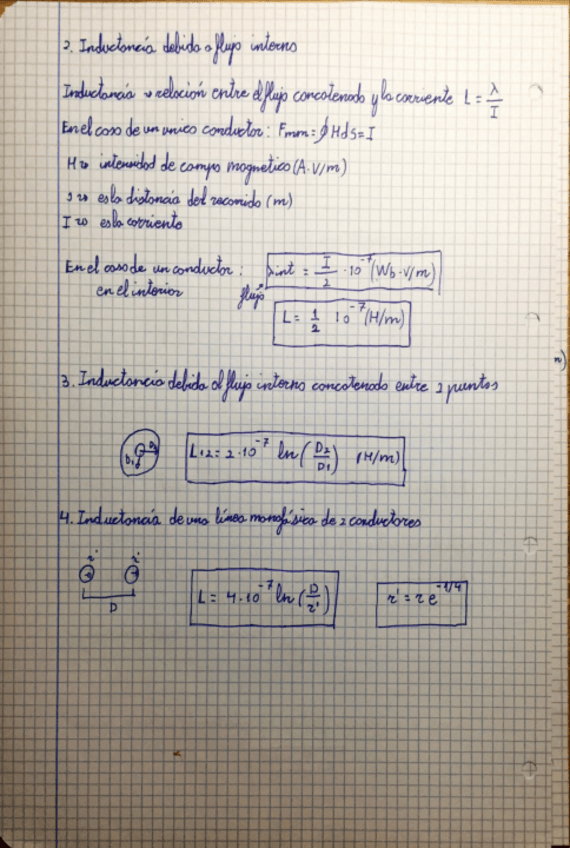 2. Inductancia debida a flujo interno
Inductancia → relación entre el flujo concatenado y la corriente L = λ/I
En el caso de un unico conductor: Fmm = ∮ H ds = I
H → intensidad de campo magnetico (A.v/m)
s → es la distancia del recorrido (m)
I → es la corriente
En el caso de un conductor : λint = I/2 · 10⁻⁷ (Wb·v/m)
en el interior
flujo
L = 1/2 10⁻⁷ (H/m)
3. Inductancia debida al flujo interno concatenado entre 2 puntos
D1 D2 L12 = 2·10⁻⁷ ln(D2/D1) (H/m)
4. Inductancia de una linea monofásica de 2 conductores
r' r'
D
L = 4·10⁻⁷ ln(D/r') r' = r e^(-1/4)